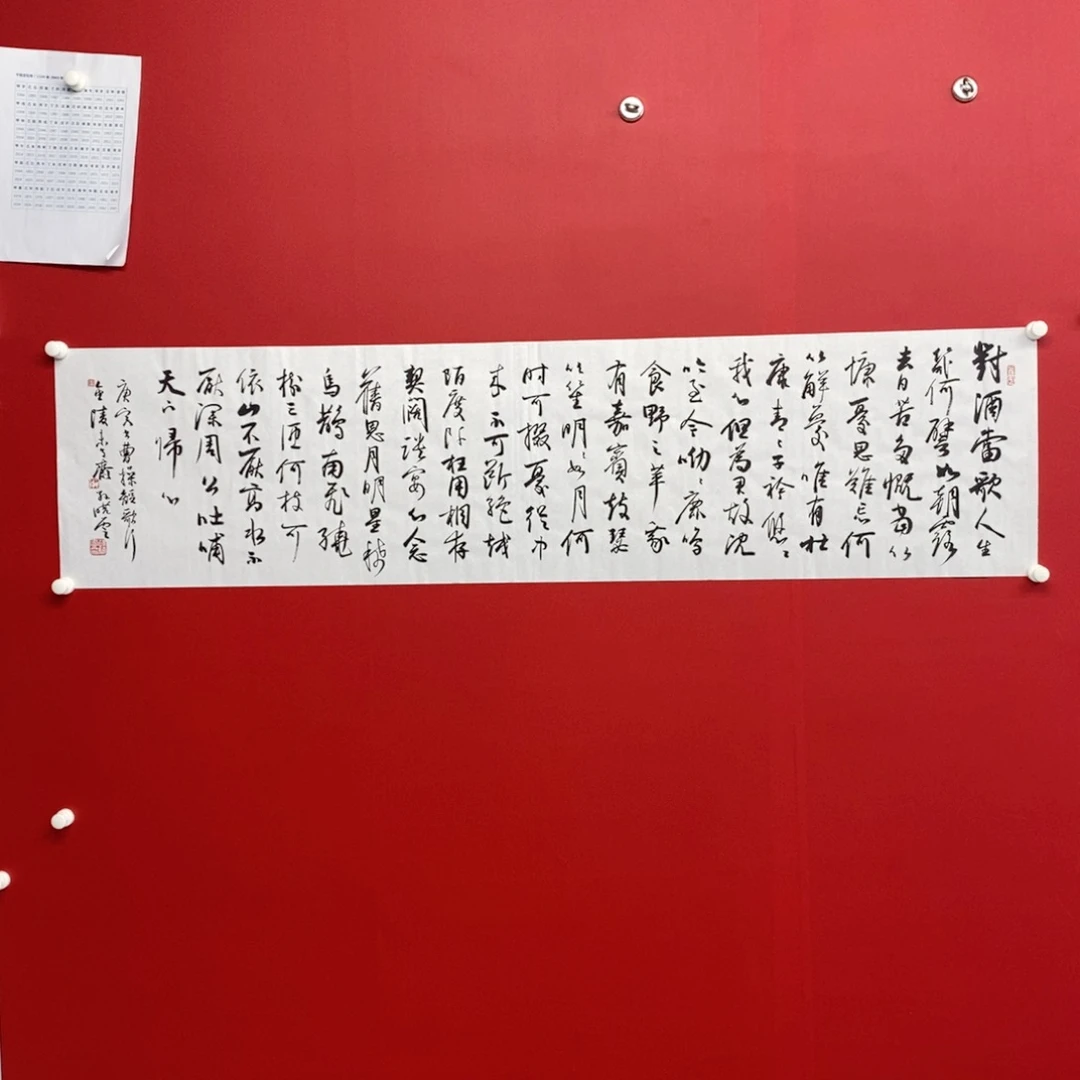 對酒當歌人生
幾何譬如朝露
去日苦多慨當以
慷憂思難忘何
以解憂唯有杜
康青〻子衿悠〻
我心但為君故沈
吟至今呦〻鹿鳴
食野之苹我
有嘉賓鼓瑟
吹笙明〻如月何
时可掇憂從中
来不可斷絕越
陌度阡枉用相存
契闊談宴心念
舊恩月明星稀
烏鵲南飛繞
樹三匝何枝可
依山不厭高水不
厭深周公吐哺
天下歸心
庚寅冬曹操短歌行
金陵